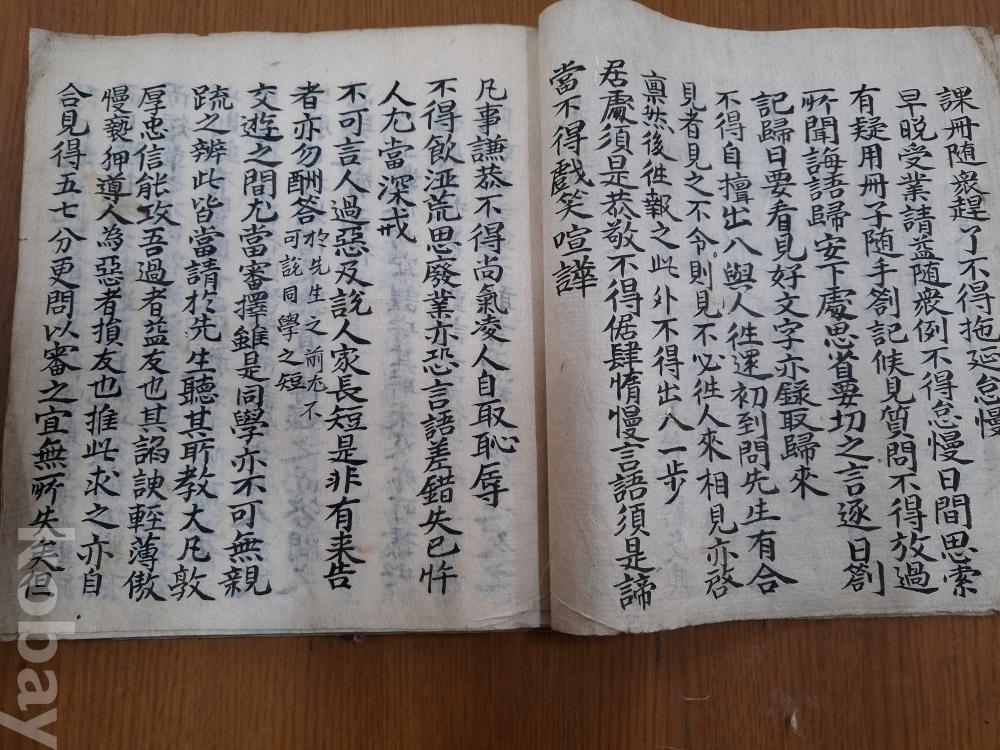 課冊随衆趕了不得拖延怠慢
早晚受業請益隨衆例不得怠慢日間思索
有疑用冊子随手劄記候見質問不得放過
所聞誨語歸安下處思省要切之言逐日劄
記歸日要看見好文字亦錄取歸來
不得自擅出入與人往還初到問先生有合
見者見之不令則見不必往人來相見亦啓
稟然後往報之此外不得出入一步
居處須是恭敬不得倨肆惰慢言語須是諦
當不得戲笑喧譁
凡事謙恭不得尚氣凌人自取恥辱
不得飲酒荒思廢業亦恐言語差錯失己忤
人尤當深戒
不可言人過惡及說人家長短是非有來告
者亦勿酬答於先生之前尤不
可說同學之短
交遊之間尤當審擇雖是同學亦不可無親
踈之辨此皆當請於先生聽其所教大凡敦
厚忠信能攻吾過者益友也其諂諛輕薄傲
慢褻狎導人為惡者損友也推此求之亦自
合見得五七分更問以審之宜無所失矣但
kobay